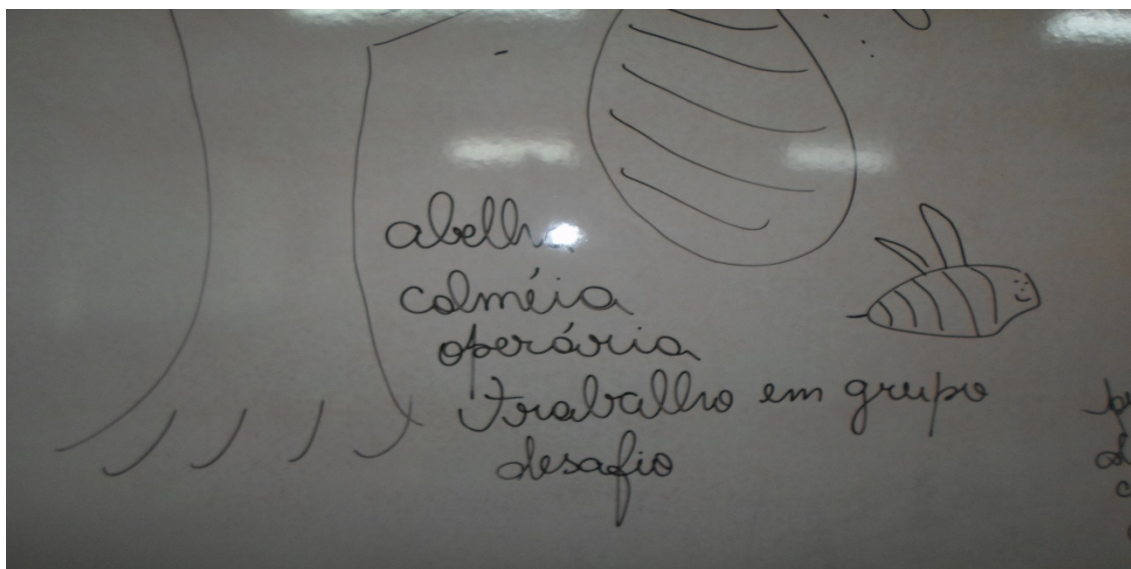 abelha
colméia
operária
trabalho em grupo
desafio